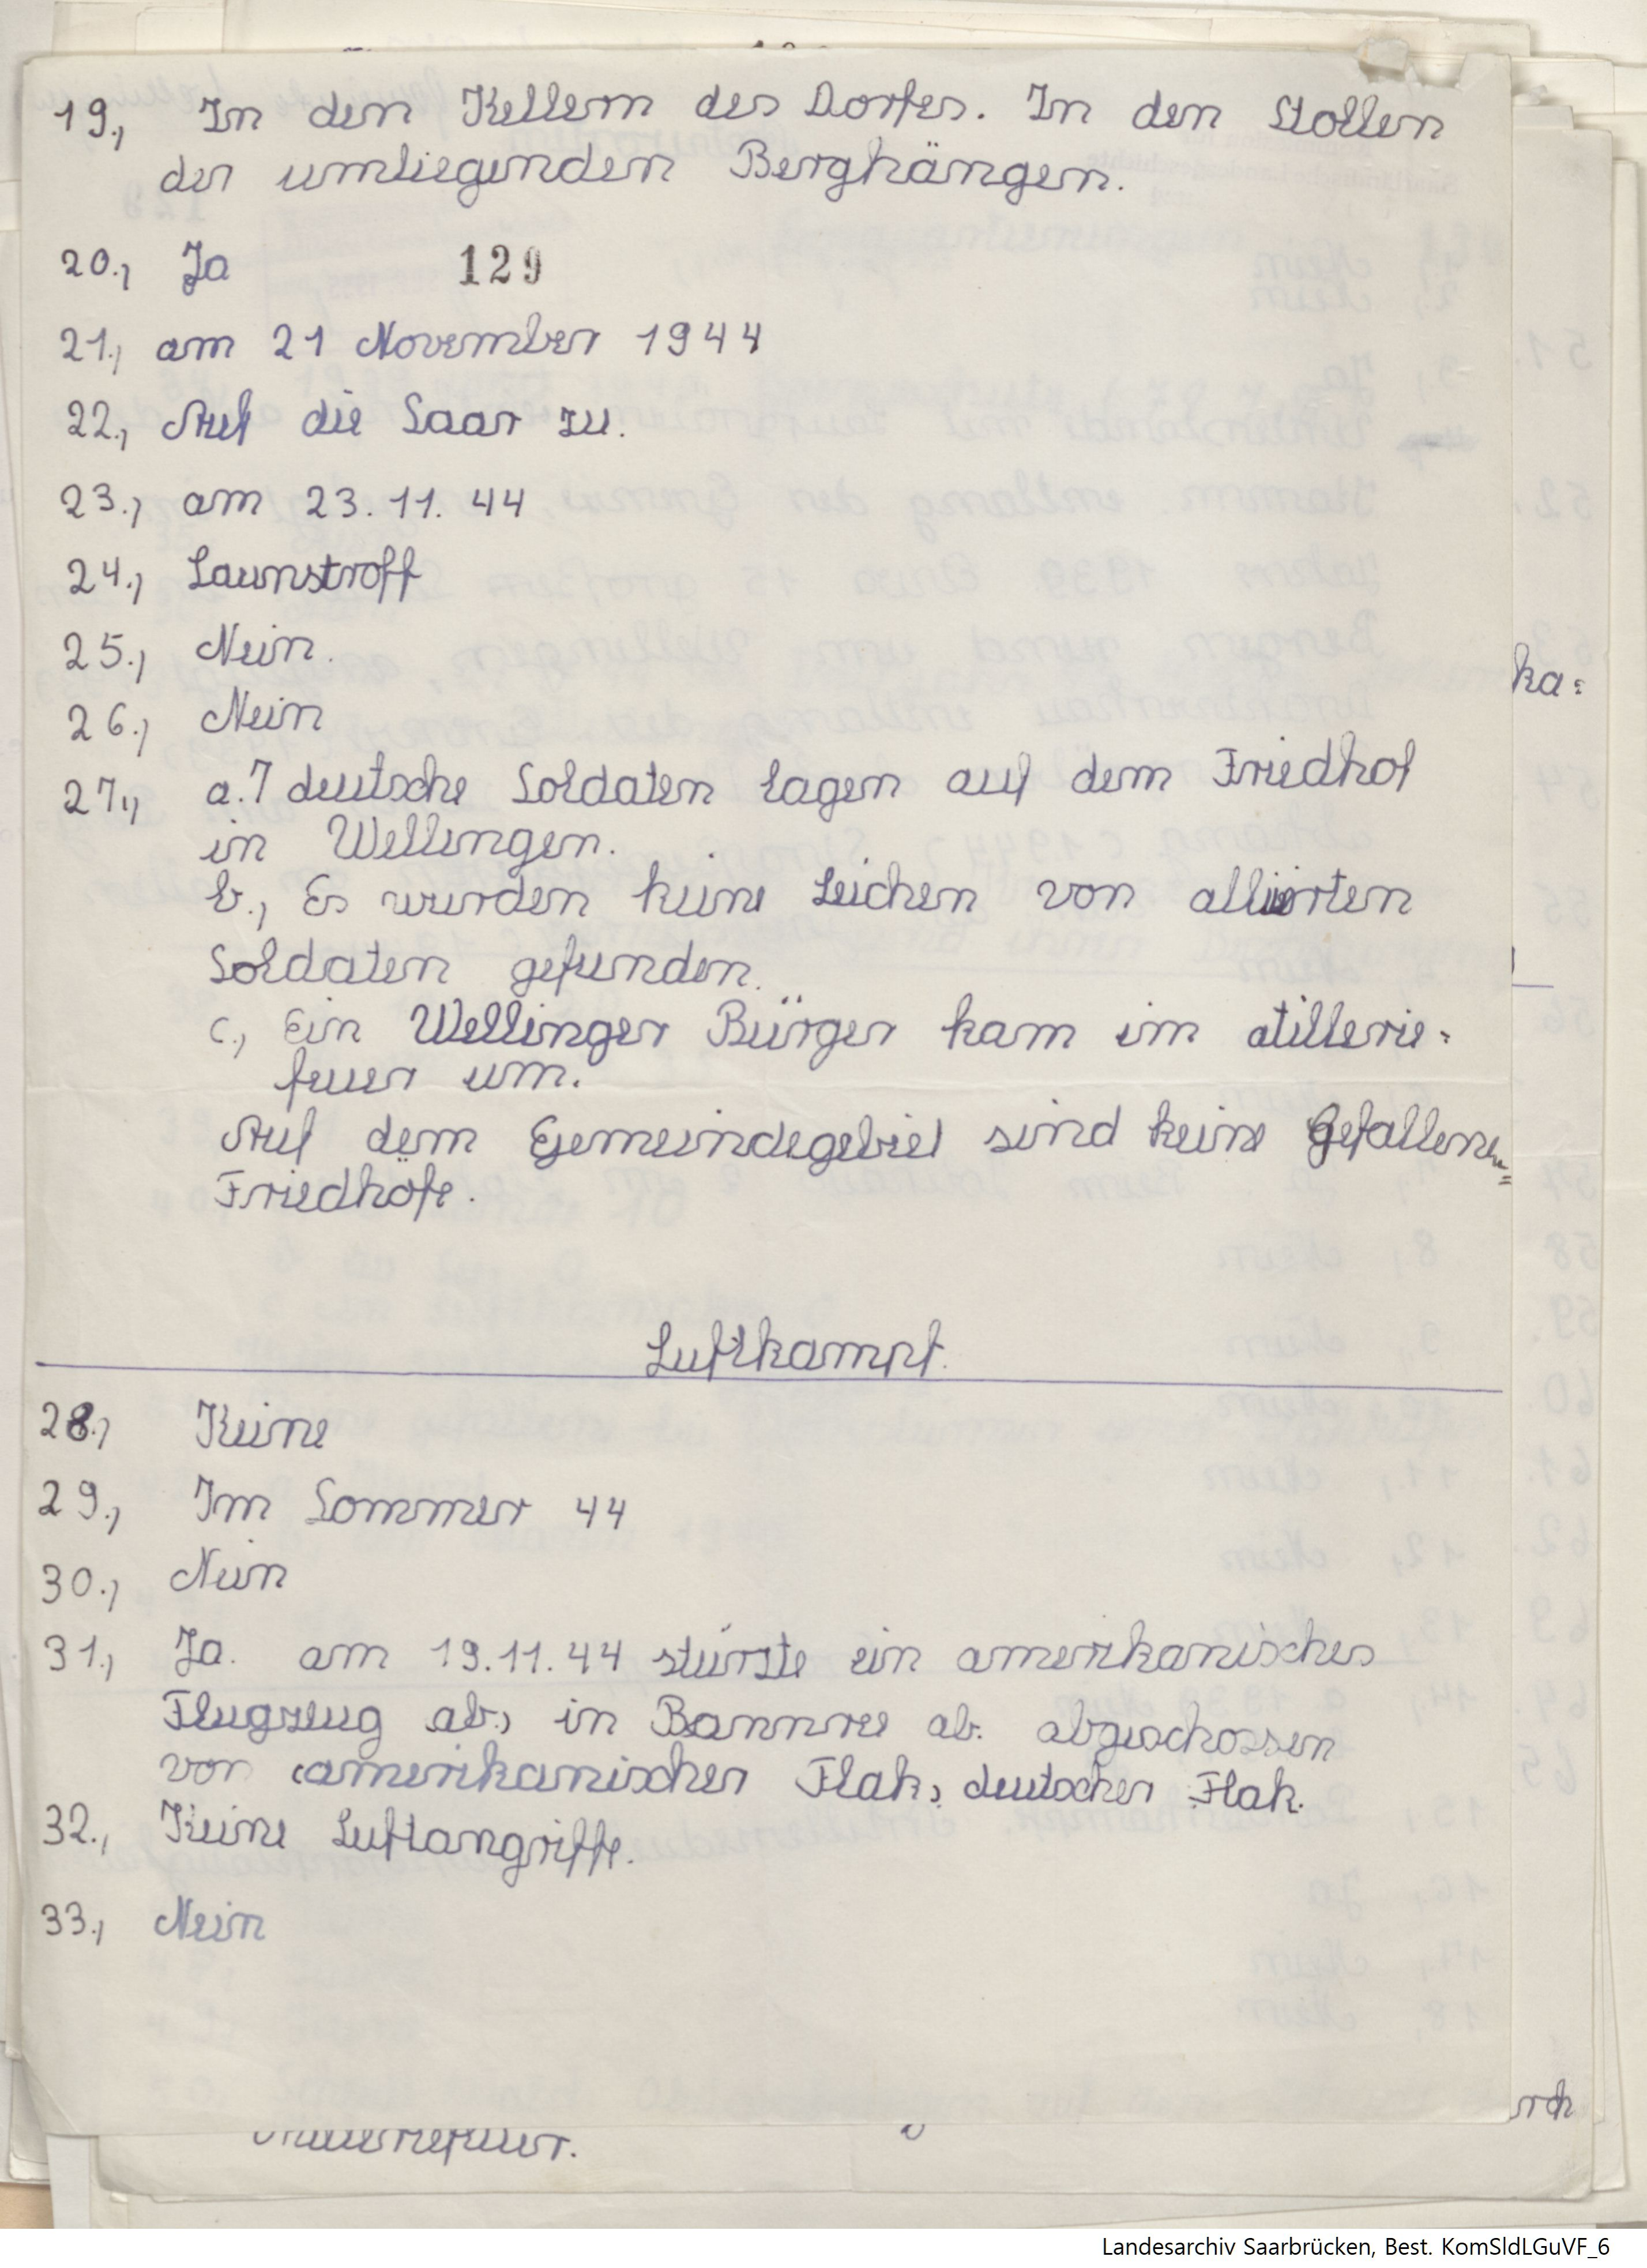 19., In den Kellern des Dorfes. In den Stollen
der umliegenden Berghängen.
20., Ja 129
21., am 21 November 1944
22., Auf die Saar zu.
23., am 23.11.44
24., Launstroff
25., Nein.
26., Nein
27., a. 7 deutsche Soldaten lagen auf dem Friedhof
in Wellingen.
b., Es wurden keine Leichen von alliierten
Soldaten gefunden.
c., Ein Wellinger Bürger kam im atillerie=
feuer um.
Auf dem Gemeindegebiet sind keine Gefallenen=
Friedhöfe.
Luftkampf.
28., Keine
29., Im Sommer 44
30., Nein
31., Ja. am 19.11.44 stürzte ein amerikanisches
Flugzeug ab., in Bannree ab. abgeschossen
von amerikanischer Flak, deutscher Flak.
32., Keine Luftangriffe.
33., Nein
ka=
rch
Landesarchiv Saarbrücken, Best. KomSldLGuVF_6